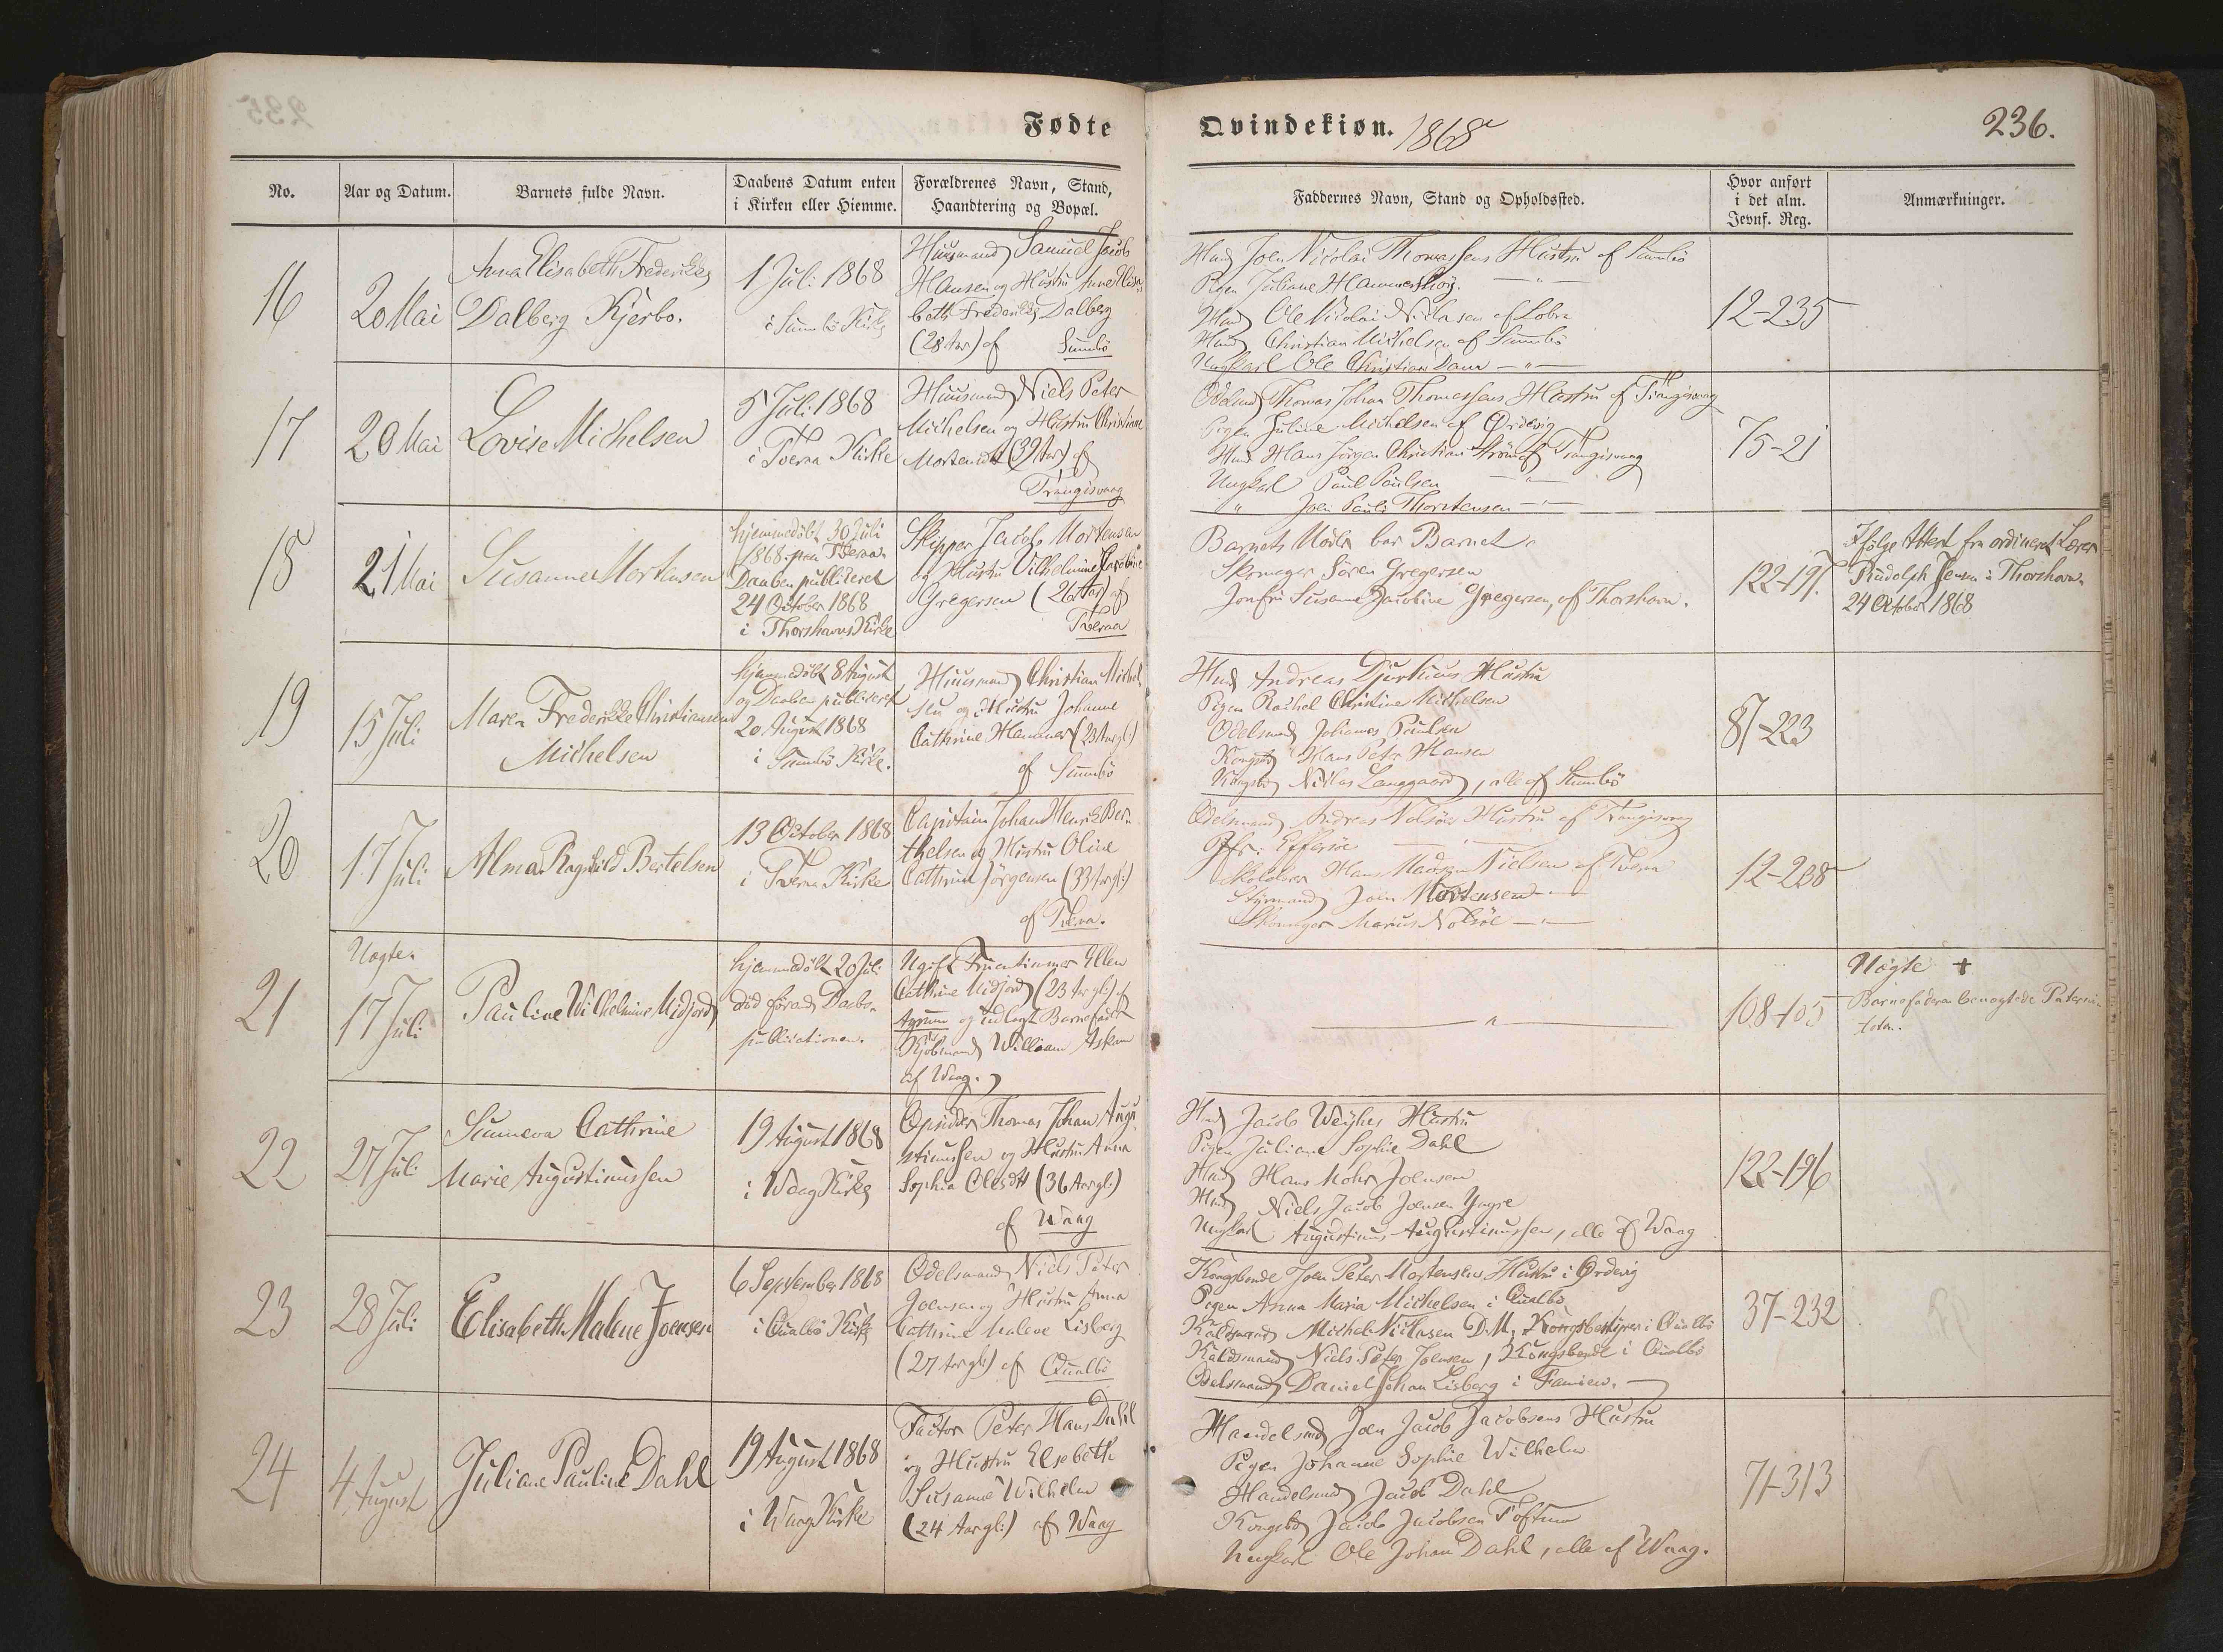 Fødte
Qvindekiøn. 1868
236.
No.
Aar og Datum.
Barnets fulde Navn.
Daabens Datum enten
i Kirken eller Hiemme.
Forældrenes Navn, Stand,
Haandtering og Bopæl.
Faddernes Navn, Stand og Opholdssted.
Hvor anført
i det alm.
Jevnf. Reg.
Anmærkninger.
16
20 Mai
Anna Elisabeth Frederikke
Dalberg Kjerbo.
1 Juli 1868
i Sumbö Kirke
Huusmand Samuel Jacob
Hansen og Hustru Anne Elisa-
beth Frederikke Dalberg
(28 Aar) af Sumbö
Hmd Joen Nicolai Thomassens Hustru af Sumbö
Pigen Juliane Hammershöi. — " —
Hmd Ole Nicolai Niclasen af Lobra
Hmd Christian Michelsen af Sumbö
Ungkarl Ole Christian Dam — " —
12-235
17
20 Mai
Lovise Michelsen
5 Juli 1868
i Tveraa Kirke
Huusmand Niels Peter
Michelsen og Hustru Christiane
Mortensdt (39 Aar) af
Trangisvaag
Odelsmd Thomas Johan Thomassens Hustru af Trangisvaag
Pigen Juline Michelsen af Ördevig
Hmd Hans Jörgen Christian Ström af Trangisvaag
Ungkarl Paul Poulsen — " —
" Joen Pauli Thorstensen — " —
75-21
18
21 Mai
Susanne Mortensen
hjemmedöbt 30 Juli
1868 paa Tveraa.
Daaben publiceret
24 October 1868
i Thorshavns Kirke
Skipper Jacob Mortensen
og Hustru Vilhelmine Jacobine
Gregersen (26 Aar) af
Tveraa
Barnets Moder bar Barnet.
Skomager Sören Gregersen
Jomfru Susanne Jacobine Gregersen, af Thorshavn.
122-191.
Ifölge Attest fra ordineret Lærer
Rudolph Jensen i Thorshavn.
24 October 1868
19
15 Juli
Maren Frederikke Christiansen
Michelsen
hjemmedöbt 8 August
og Daaben publiceret
20 August 1868
i Sumbö Kirke.
Huusmand Christian Michel
sen og Hustru Johanne
Cathrine Hammer (23 Aar gl:)
af Sumbö
Hmd Andreas Djurhuus Hustru
Pigen Rachel Christine Michelsen
Odelsmd Johannes Poulsen
Kongsbd Hans Peter Hansen
Kongsbd Niclas Langgaard, alle af Sumbö
87-223
20
17 Juli
Alma Ragnhild Bertelsen
13 October 1868
i Tveraa Kirke
Capitain Johan Henrik Ber-
thelsen og Hustru Oline
Cathrine Jörgensen (33 Aar gl:)
af Tveraa.
Odelsmand Andreas Nolsöes Hustru af Trangisvaag
Skolelærer Hans Madsen Nielsen af Tveraa
Styrmand Joen Mortensen — " —
Skomager Marius Nolsöe — " —
12-208
21
Uægte.
17 Juli
Pauline Wilhelmine Midjord
hjemmedöbt 20 Juli
död förend Daabs-
publicationen.
Ugift Fruentimmer Ellen
Cathrine Midjord (23 Aar gl:) af
og udlagt Barnefader
Kjöbmand William Askam
af Waag.
— " —
108-105
Uægte +
Barnefaderen benægtede Paterni-
teten.
22
27 Juli
Sunneva Cathrine
Marie Augustinussen
19 August 1868
i Waag Kirke
Opsidder Thomas Johan Augu-
stinussen og Hustru Anna
Sophia Olesdt (36 Aar gl:)
af Waag
Hmd Jacob Weyhes Hustru
Pigen Juliane Sophie Dahl
Hmd Hans Mohr Joensen
Hmd Niels Jacob Joensen Yngre
Ungkarl Augustinus Augustinussen, alle af Waag
122-196
23
28 Juli
Elisabeth Malene Joensen
6 September 1868
i Qualbö Kirke
Odelsmand Niels Peter
Joensen og Hustru Anna
Cathrine Malene Lisberg
(27 Aar gl:) af Qualbö
Kongsbonde Joen Peter Mortensens Hustru i Ördevig
Pigen Anna Maria Michelsen i Qualbö
Michel Niclasen D.M., i Qualbö
Niels Peter Joensen, Kongsbonde i Qualbö
Odelsmand Daniel Johan Lisberg i Famien.
37-232
24
4 August
Juliane Pauline Dahl
19 August 1868
i Waag Kirke
Factor Peter Hans Dahl
og Hustru Elsebeth
Susanne Wilhelm
(24 Aar gl:) af Waag
Handelsmd Joen Jacob Jacobsens Hustru
Pigen Johanne Sophie Wilhelm
Handelsmd Jacob Dahl
Kongsbd Jacob Jacobsen Toftum
Ungkarl Ole Johan Dahl, alle af Waag.
71-313